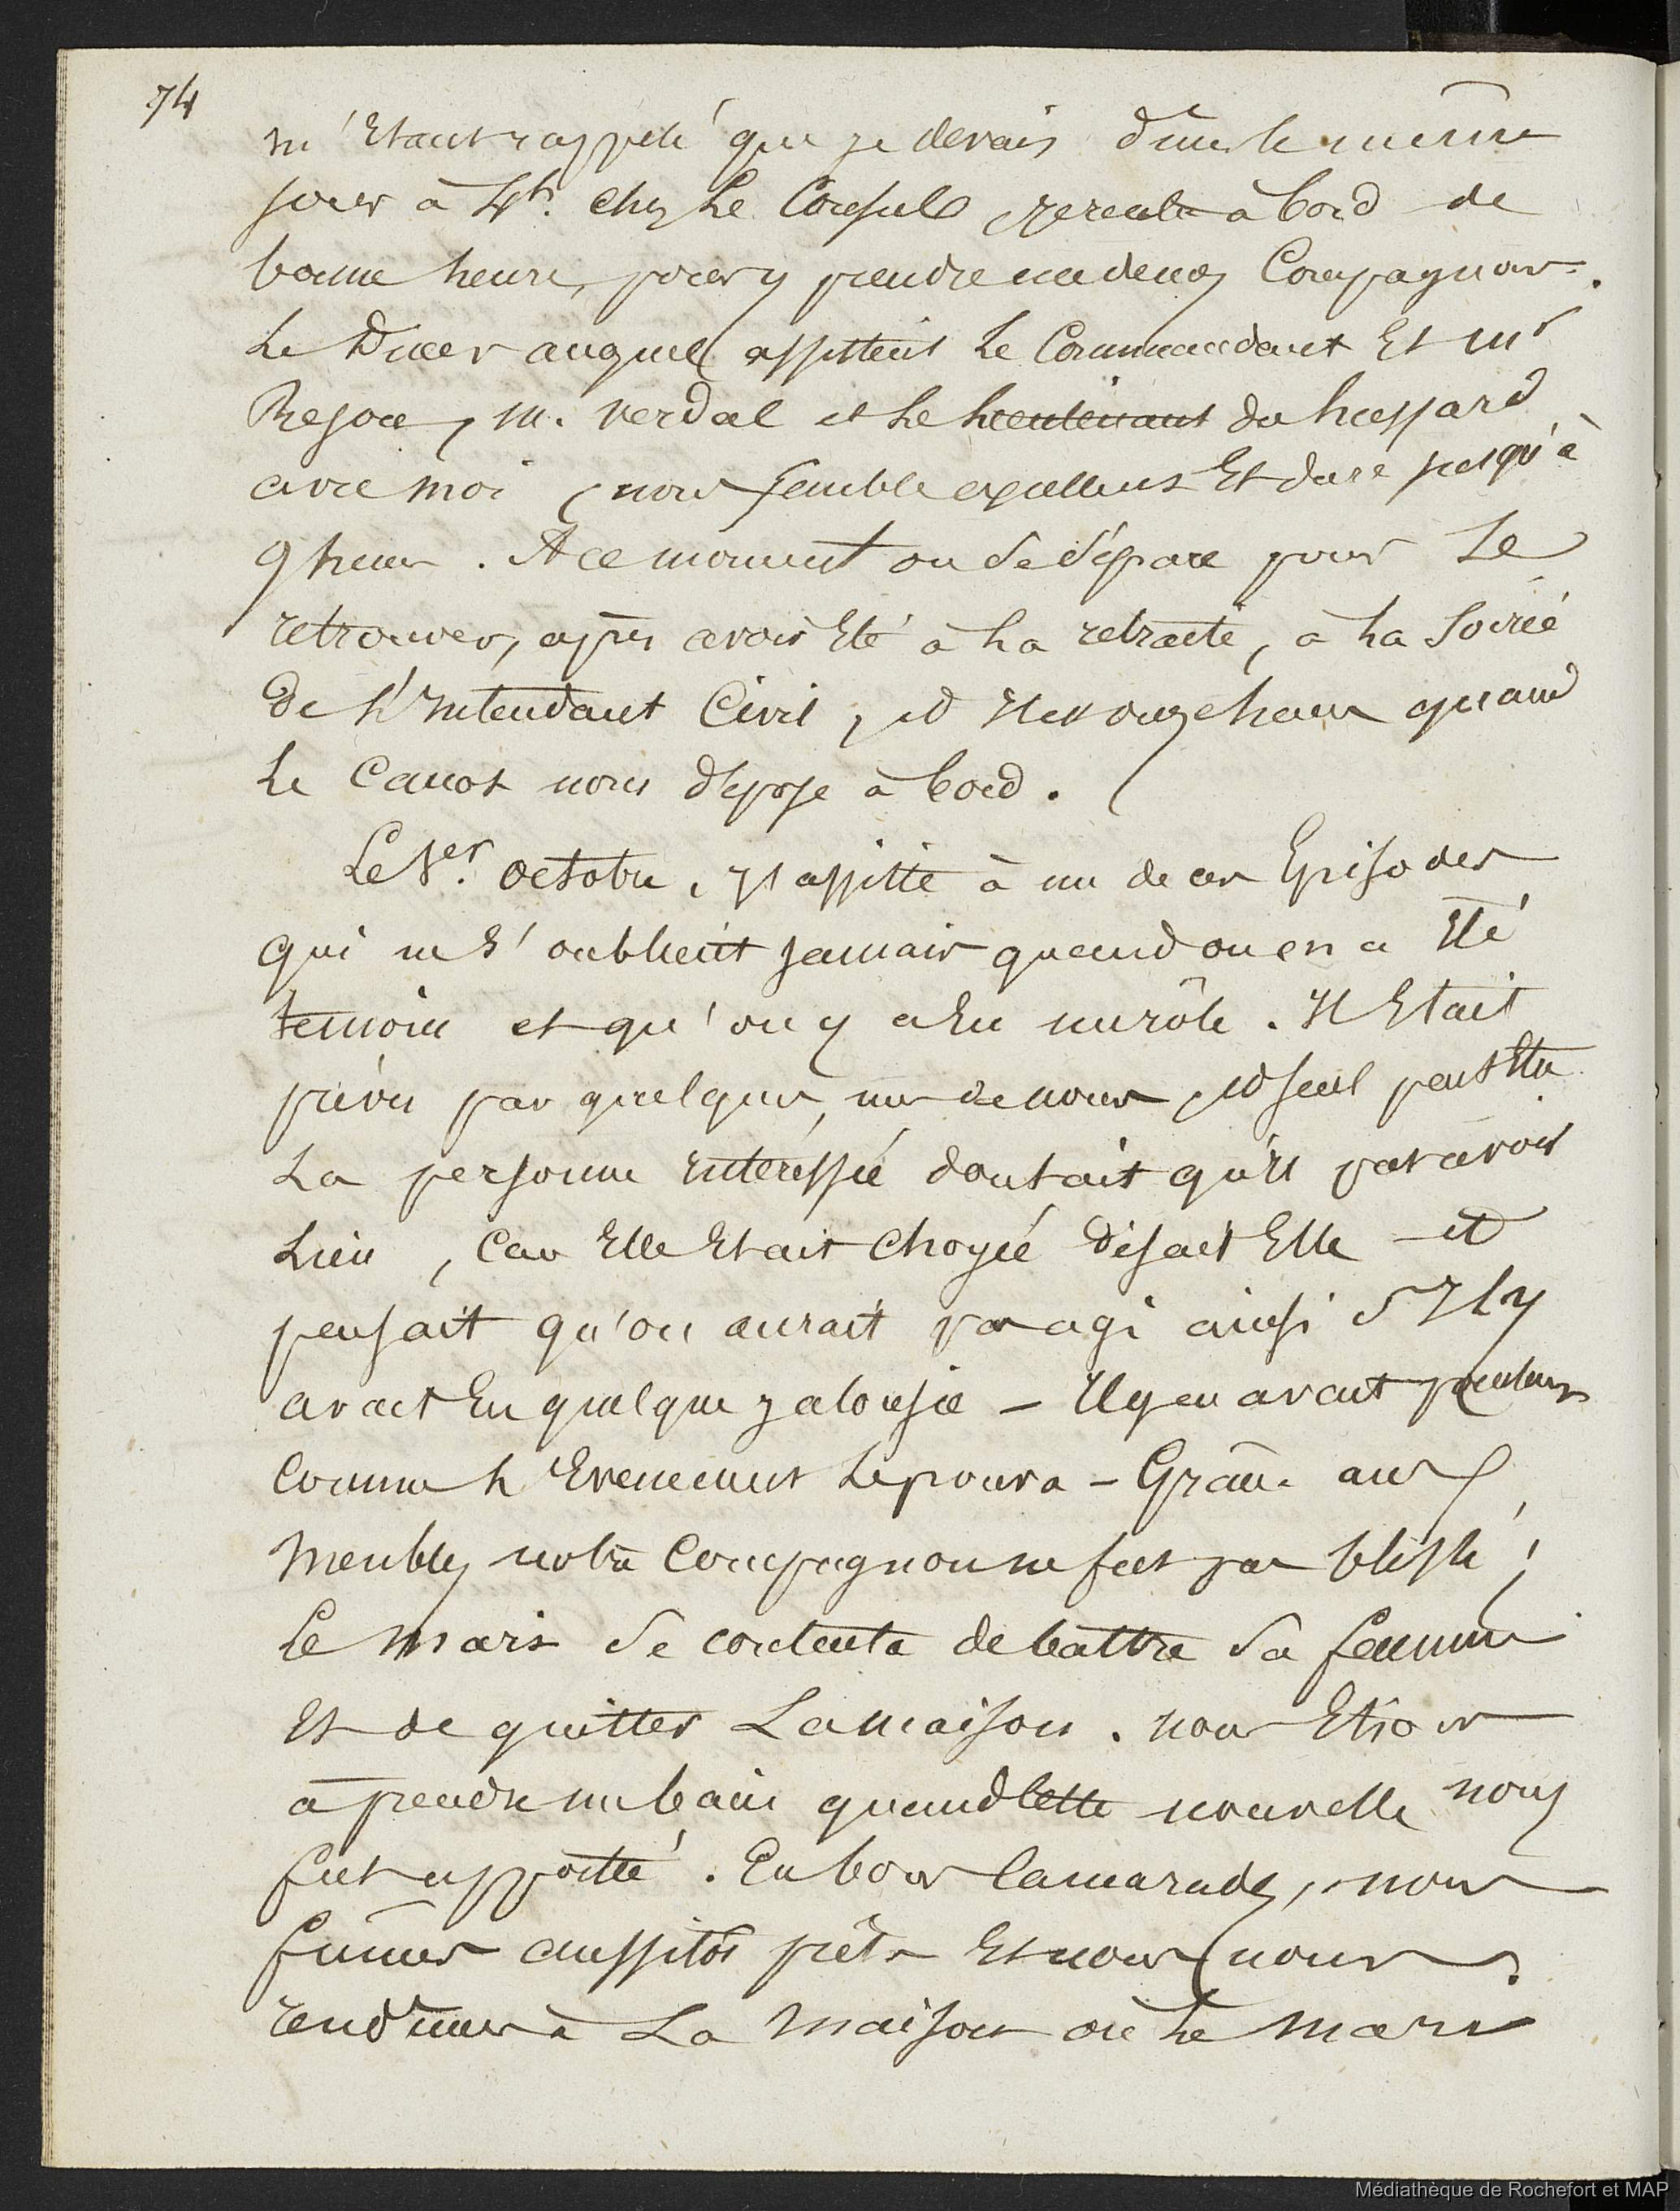 74
m'Etant rappelé que je devais diner le même
jour à 4h. chez Le Consul je rentre à bord de
bonne heure, pour y prendre un de nos Compagnons.
Le Diner auquel assistent Le Commandant Et Mr
M. Verdal et Le Lieutenant du hussard
avec moi, nous semble excellent Et dure jusqu'à
9 heures. A ce moment on se sépare pour se
retrouver, après avoir Eté à La retraite, à La Soirée
De L'Intendant Civil, et Il est onze heures quand
Le Canot nous dépose à bord.
Le 1er. octobre, j'assiste à un de ces Episodes
qui ne s'oublient jamais quand on en a Eté
temoin et qu'on y a Eu un rôle. Il Etait
prévu par quelques uns de nous, et seul peut Etre
La personne intéressée doutait qu'il put avoir
Lieu, Car Elle Etait Choyée disait Elle et
pensait qu'on aurait pas agi ainsi s'Il y
avait Eu quelque jalousie - Il y en avait pourtant
Comme L'Evenement Le prouva - Grâce aux
Meubles notre Compagnon ne fut pas blessé;
Le Mari se contenta de battre sa femme
Et de quitter La maison. nous Etions
à prendre un bain quand Cette nouvelle nous
fut apportée. En bons Camarades, nous
fûmes aussitôt prêts Et nous nous
rendîmes à La Maison où Le Mari
Médiathèque de Rochefort et MAP